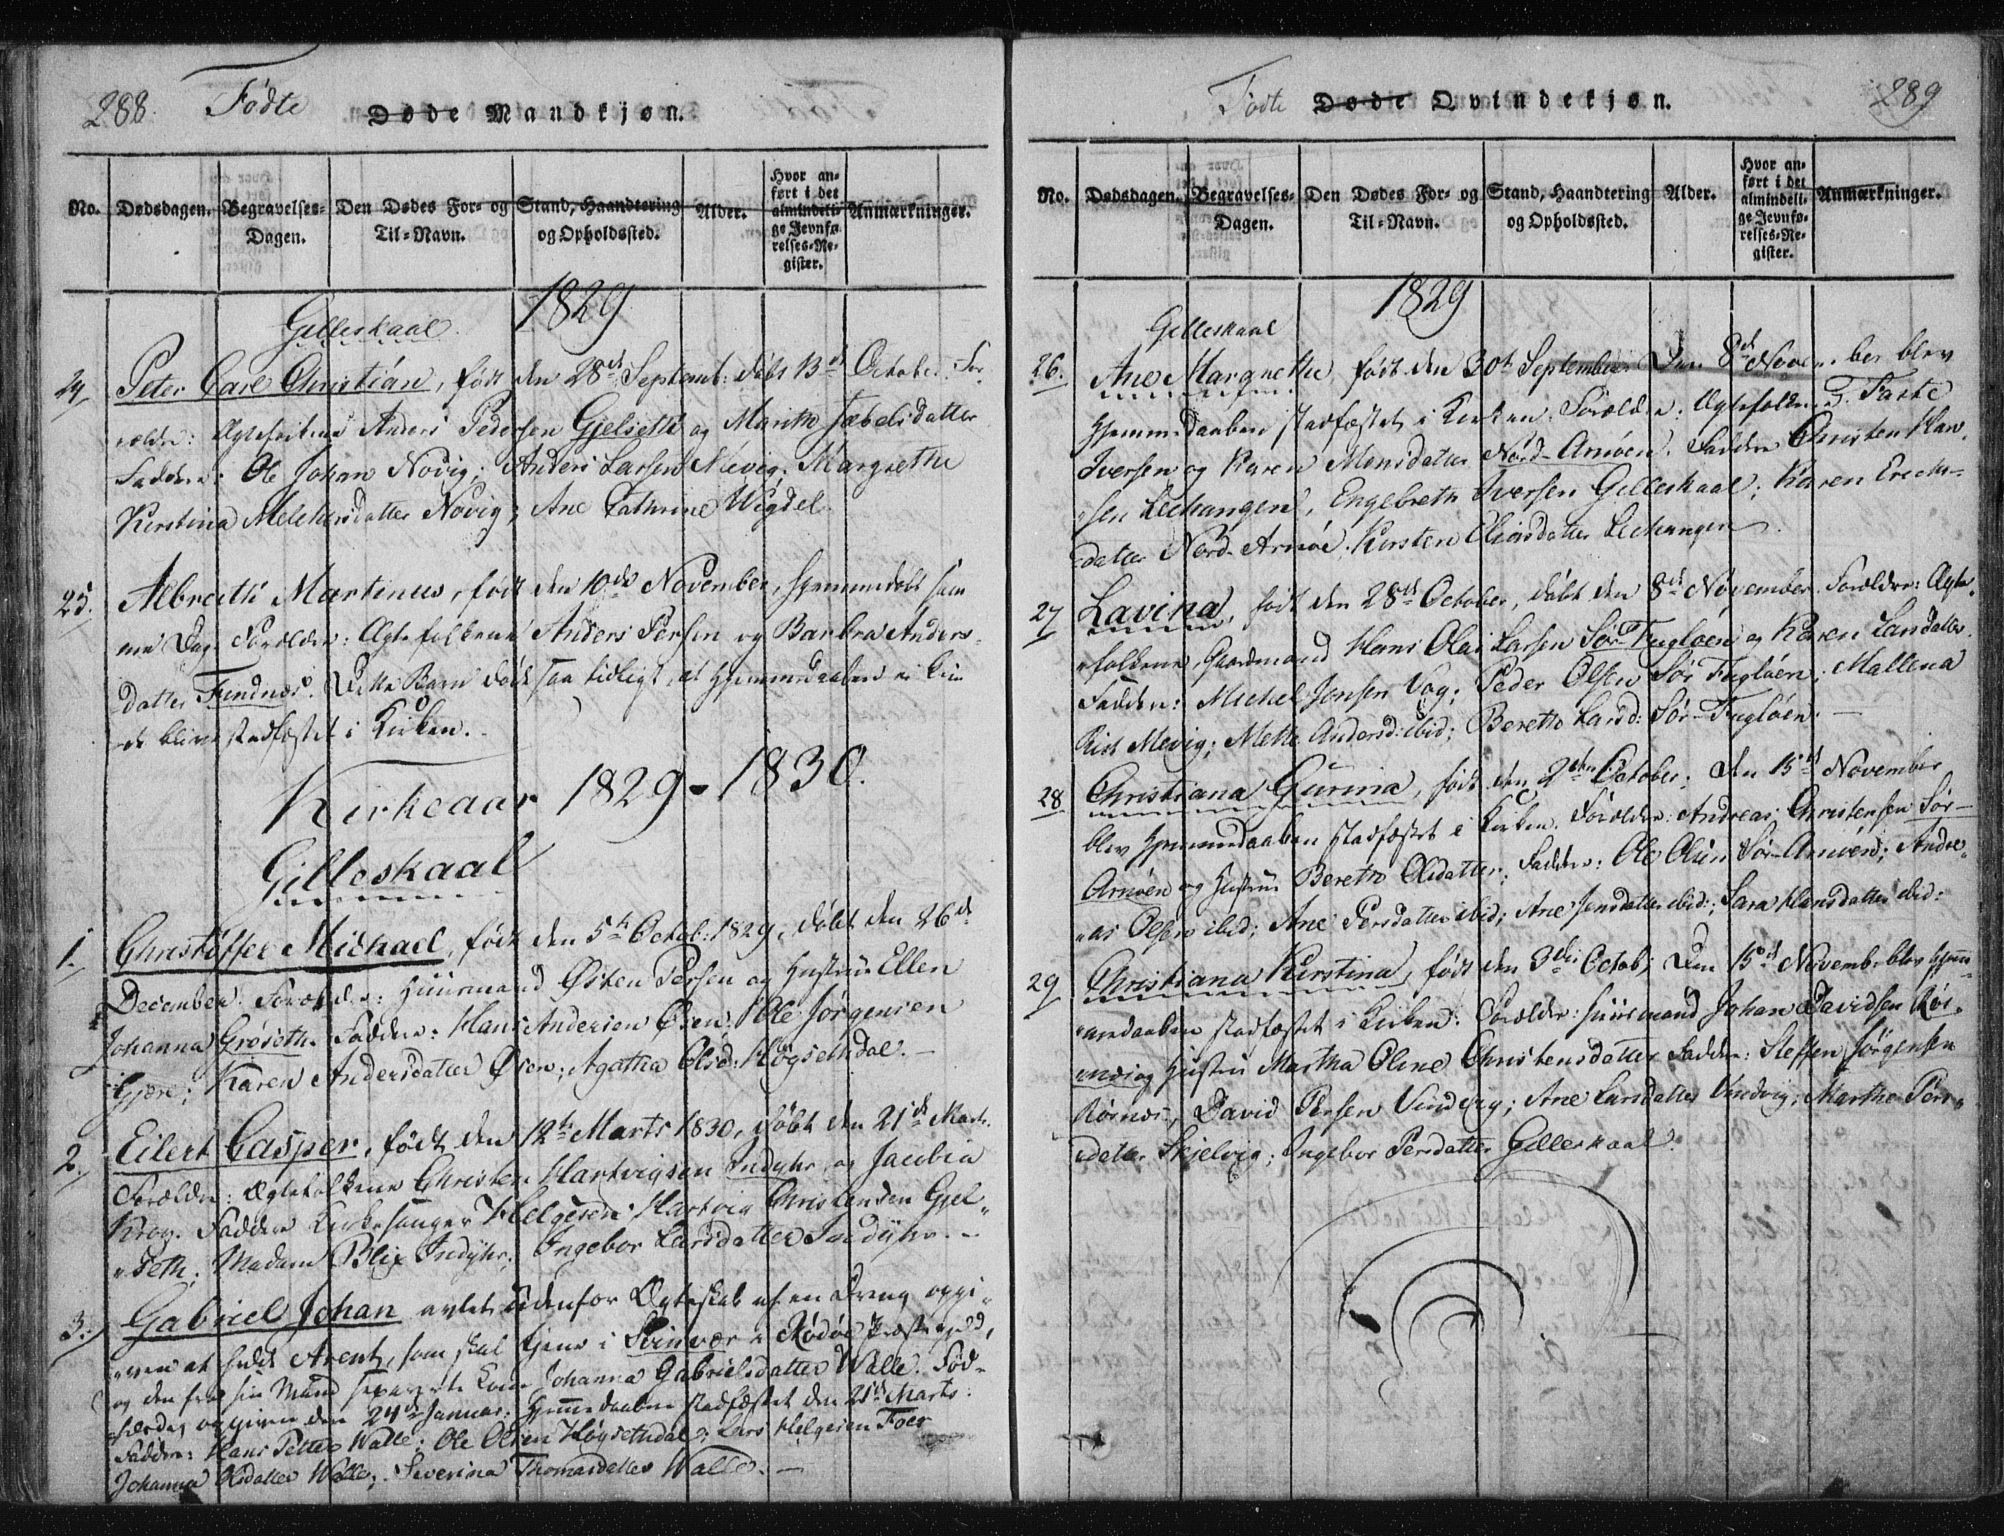 288. Fødte Døde Mandkjøn.
No. Dødsdagen. Begravelses-Dagen. Den Dødes For- og Til-Navn. Stand, Haandtering og Opholdssted. Alder. Hvor anført i det almindelige Jevnførelses-Register. Anmærkninger.
1829
Gilleskaal
24 Peter Carl Christian, født den 28de Septemb: döbt 13de October. For-
ældre: Anders Pedersen Gjelseth og Marith Jæbelsdatter
Faddere: Ole Johan Novig; Anders Larsen Mevig; Margrethe
Kirstina Melchersdatter Novig; Ane Cathrine Wigdel.
25. Albreth Martinus, født den 10de November, hjemmedøbt sam-
me Dag. Forældre: Ægtefolkene Anders Persen og Barbra Anders-
datter Findnæs. Dette Barn døde saa tidligt, at Hjemmedaaben ei kun-
de blive stadfæstet i Kirken.
Kirkeaar 1829 - 1830.
Gilleskaal
1. Christoffer Michael, født den 5te Octob: 1829, døbt den 26de
December. Forældre: Huusmand Østen Persen og Hustrue Ellen
Johanna Grøseth. Faddere: Hans Andersen Øsen; Ole Jørgensen
Gjære; Karen Andersdatter Øsen; Agatha Olsd: Høgsethdal. —
2. Eilert Casper, født den 12te Marts 1830, döbt den 21de Marts.
Forældre: Ægtefolkene Christen Hartvigsen Indyhr og Jacobia
Krog. Faddere Kirkesanger Helgesen; Hartvig Christensen Gjel-
seth; Madam Blix Indyhr; Ingebor Larsdatter Indyhr. —
3. Gabriel Johan avlet udenfor Ægteskab af en Dreng opgi-
ven at hedde Arent, som skal tjene i Svinvær i Rødøe Præstegjeld,
og den fra sin Mand separerte Kone Johanna Gabrielsdatter Walle. Fød-
selsdag opgiven den 24de Januar. Hjemmedaaben stadfæstet den 21de Marts.
Faddere: Hans Petter Walle; Ole Olsen Høgsethdal; Lars Helgesen Foer
Johanna Olsdatter Walle; Severina Thomasdatter Walle. —
Fødte Døde Qvindekjøn. 289
No. Dødsdagen. Begravelses-Dagen. Den Dødes For- og Til-Navn. Stand, Haandtering og Opholdssted. Alder. Hvor anført i det almindelige Jevnførelses-Register. Anmærkninger.
1829
Gilleskaal
26. Ane Margrethe, født den 30te September. Den 8de November blev
Hjemmedaaben stadfæstet i Kirken. Forældre: Ægtefolkene Taste
Iversen og Karen Monsdatter Nord-Arnöen. Faddere Christen Han-
sen Lechangen; Engebreth Iversen Gilleskaal; Karen Erichs-
datter Nord-Arnöe. Kirsten Olinsdatter Lechangen.
27 Lavina, født den 28de October, döbt den 8de November. Forældre: Ægte-
folkene, Gaardmand Hans Olai Larsen Sør Fugløen og Karen Larsdatter.
Faddere: Michel Jensen Vog; Peder Olsen Sör Fugløen; Mallena
Rist Mevig; Mette Andersd: ibid; Berette Larsd: Sör-Fuglöen. —
28. Christiana Gurina, født den 2den October. Den 15de November
blev Hjemmedaaben stadfæstet i Kirken. Forældre: Andreas Christensen Sør-
Arnøen og Hustrue Berette Olsdatter. Faddere: Ole Olsen Sör-Arnöen; Andre-
as Olsen ibid; Ane Persdatter ibid; Ane Jensdatter ibid; Sara Hansdatter ibid:
29 Christiana Kirstina, født den 3die Octob. Den 15de Novemb. blev Hjem-
medaaben stadfæstet i Kirken. Forældre: Huusmand Johan Davidsen Rør-
næs og Hustrue Martha Oline Christensdatter. Faddere: Steffen Jørgensen
Rørnæs; David Persen Vindvig; Ane Larsdatter Vindvig; Marthe Pers-
datter Skjelvig; Ingebor Persdatter Gilleskaal.